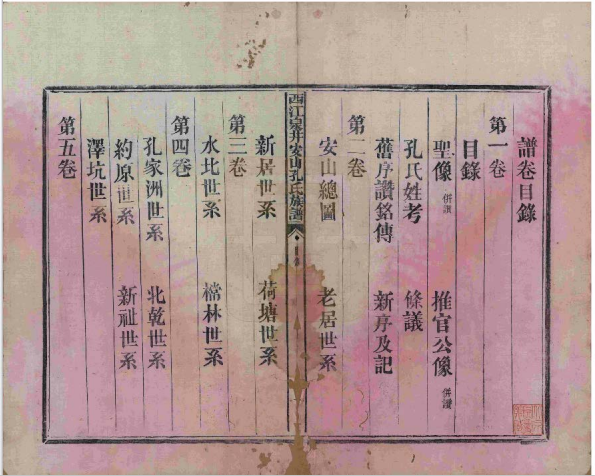 譜卷目錄
第一卷
目錄
聖像 併讚 推官公像 併讚
孔氏姓考 條議
舊序讚銘傳 新序及記
第二卷
安山總圖 老居世系
安山孔氏族譜
新居世系 荷塘世系
第三卷
水北世系 檔林世系
第四卷
孔家洲世系 北乾世系
約原世系 新祉世系
澤坑世系
第五卷